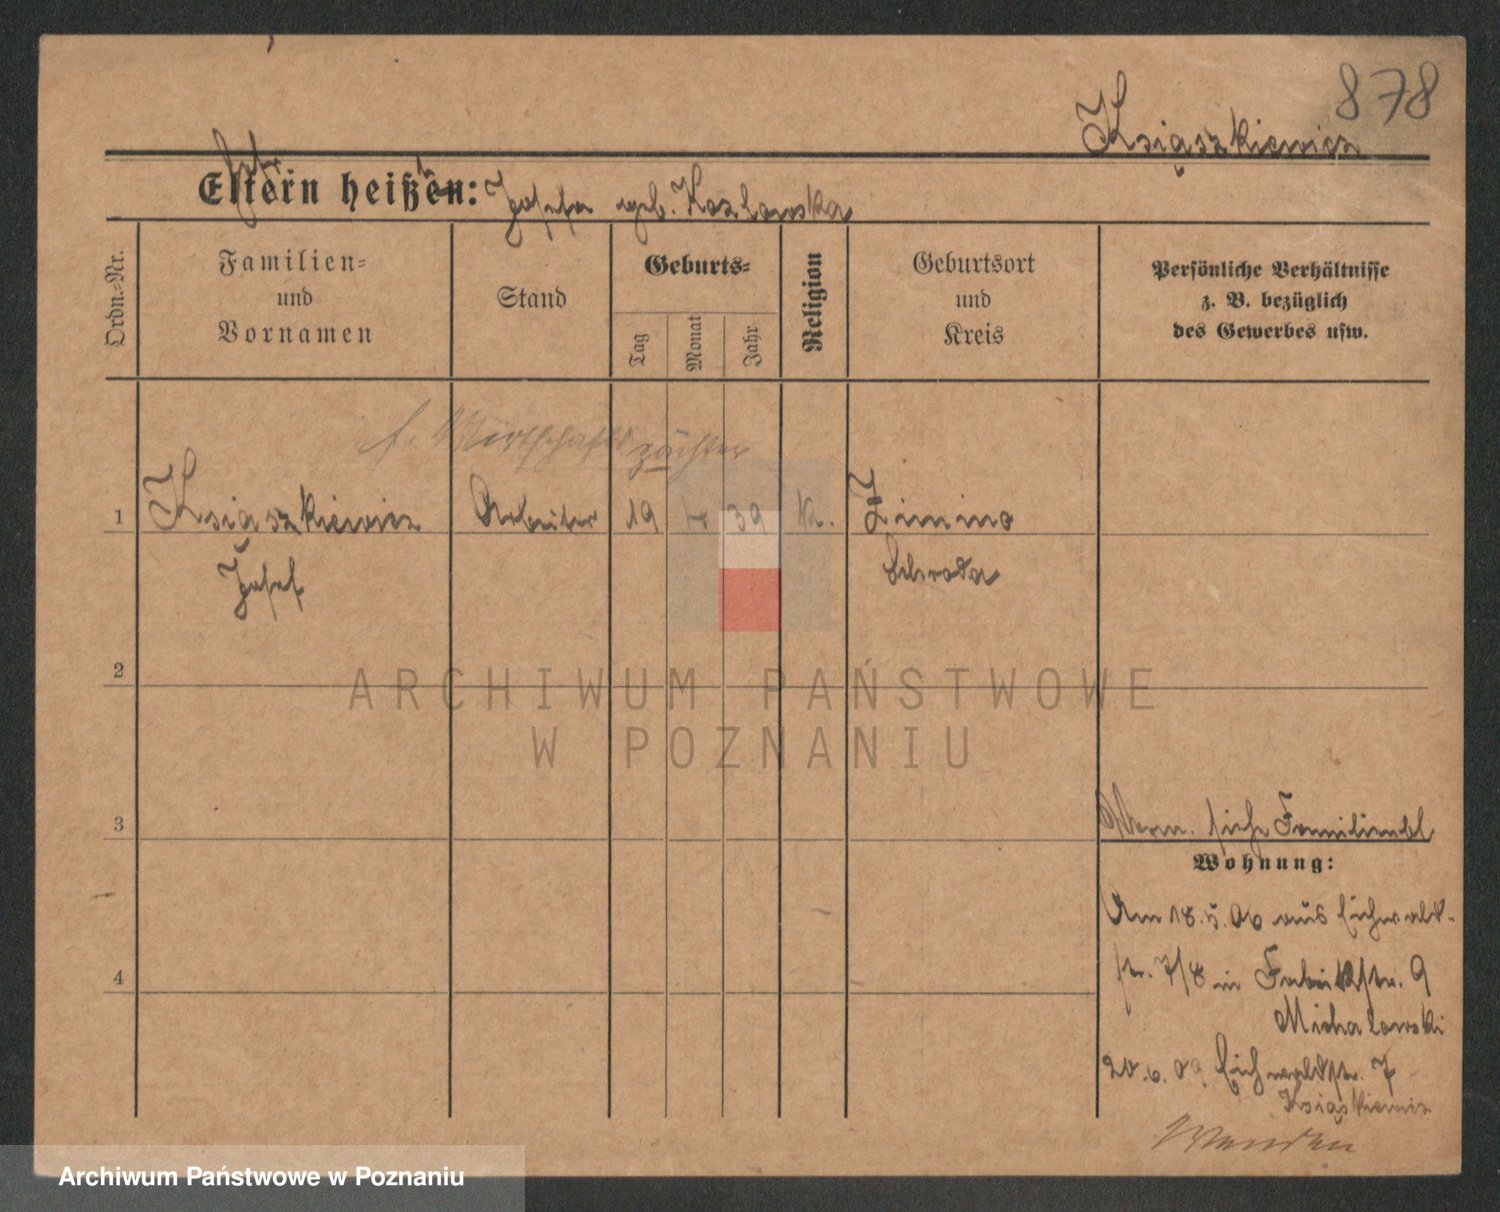 878
Książkiewicz
Eltern heißen: Josefa geb. Kozlowska
Ordn.-Nr.
Familien-
und
Vornamen
Stand
Geburts-
Tag
Monat
Jahr
Religion
Geburtsort
und
Kreis
Persönliche Verhältnisse
z. B. bezüglich
des Gewerbes usw.
f. Wirthschafts
1 Ksiaszkiewicz Arbeiter 19 39 K. Zimino
Josef Schroda
2
ARCHIWUM PAŃSTWOWE
W POZNANIU
3
siehe Familienbl
Wohnung:
Am 18.5.06 aus Eichwald-
str. 7/8 in Fabrikstr. 9
4
Michalowski
20.6.09 Eichwaldstr. 7
Książkiewicz
Wenden
Archiwum Państwowe w Poznaniu